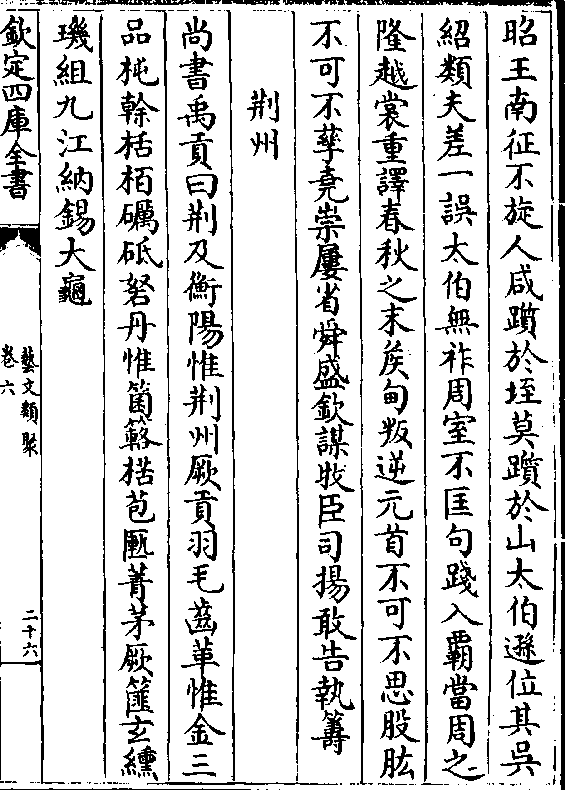 昭王南征不旋人咸躓於垤莫躓於山太伯遜位其吳
紹類夫差一誤太伯無祚周室不匡句踐入霸當周之
隆越裳重譯春秋之末侯甸叛逆元首不可不思股肱
不可不孳堯崇屢省舜盛欽謀牧臣司揚敢告執籌
荆州
尚書禹貢曰荆及衡陽惟荆州厥貢羽毛齒革惟金三
品杶榦栝栢礪砥砮丹惟箘簵楛苞匭菁茅厥篚玄纁
璣組九江納錫大龜
欽定四庫全書
藝文類聚
卷六
二十六